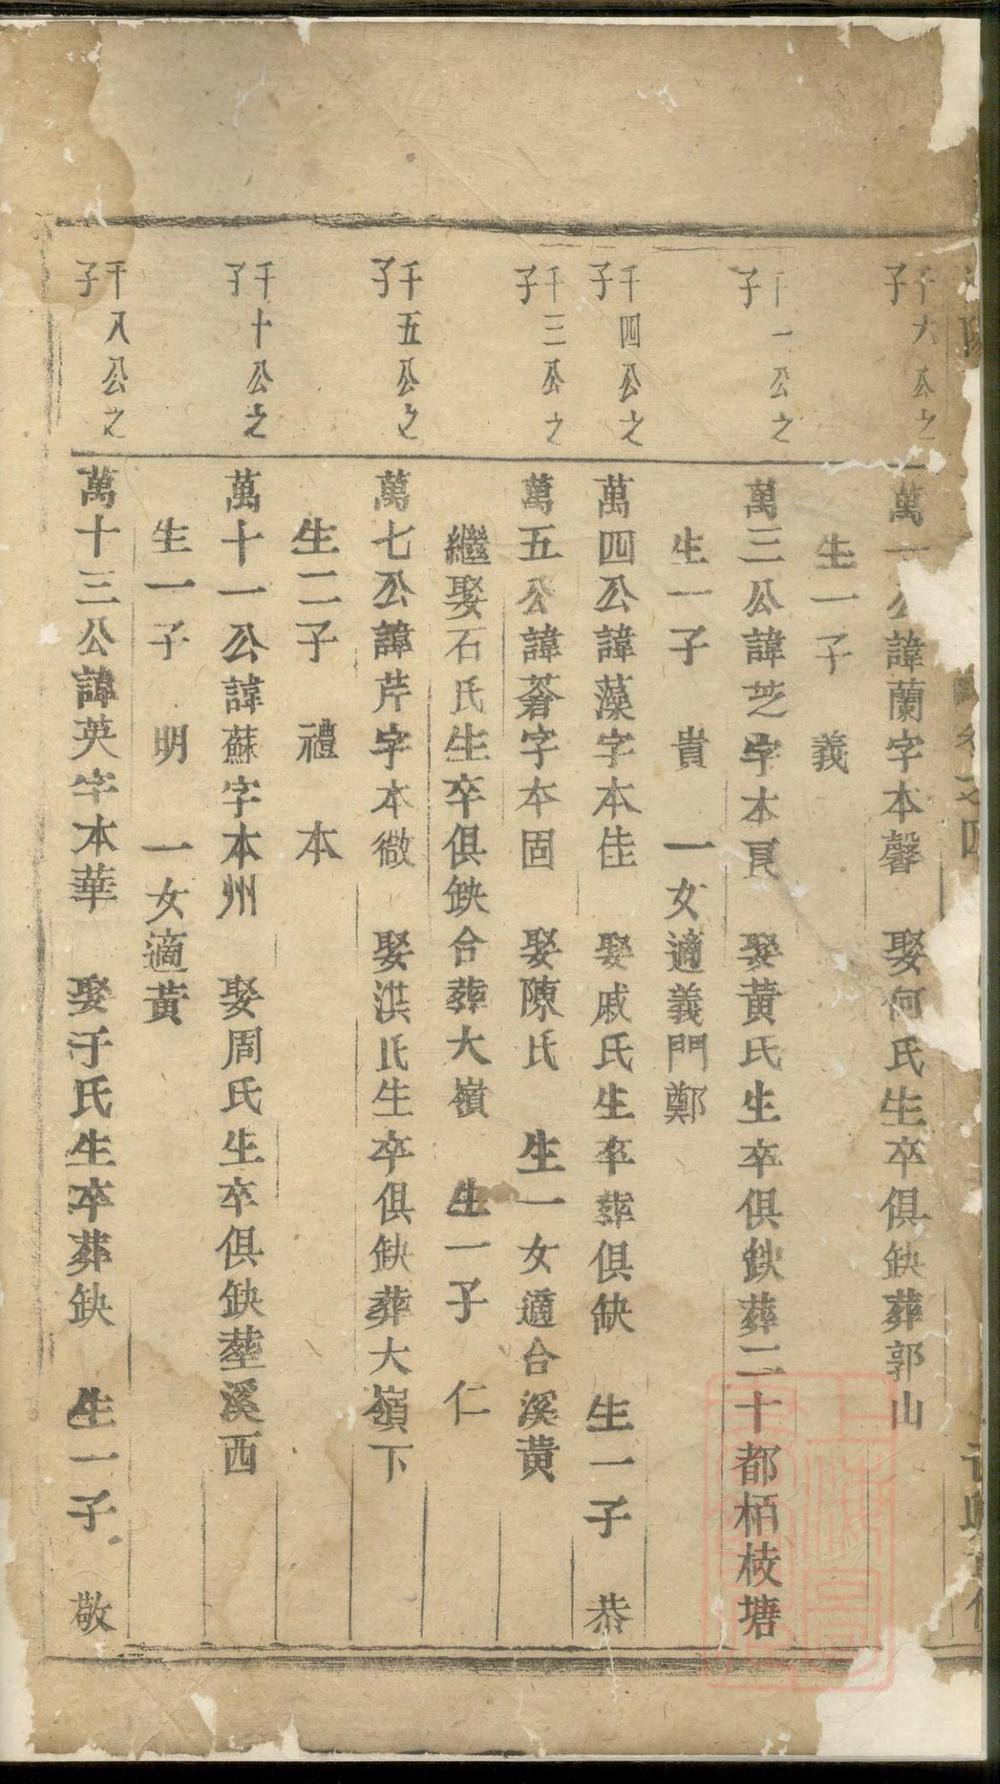 千六公之子
萬一公諱蘭字本馨 娶何氏生卒俱缺葬郭山
生一子 義
一公之子
萬三公諱芝字本良 娶黃氏生卒俱缺葬二十都栢枝塘
生一子 貴 一女適義門鄭
千四公之子
萬四公諱藻字本佳 娶戚氏生卒葬俱缺 生一子 恭
千三公之子
萬五公諱著字本固 娶陳氏 生一女適合溪黃
繼娶石氏生卒俱缺合葬大嶺 生一子 仁
千五公之子
萬七公諱芹字本徵 娶洪氏生卒俱缺葬大嶺下
生二子 禮 本
千十公之子
萬十一公諱蘇字本州 娶周氏生卒俱缺塟溪西
生一子 明 一女適黃
千八公之子
萬十三公諱英字本華 娶于氏生卒葬缺 生一子 敬